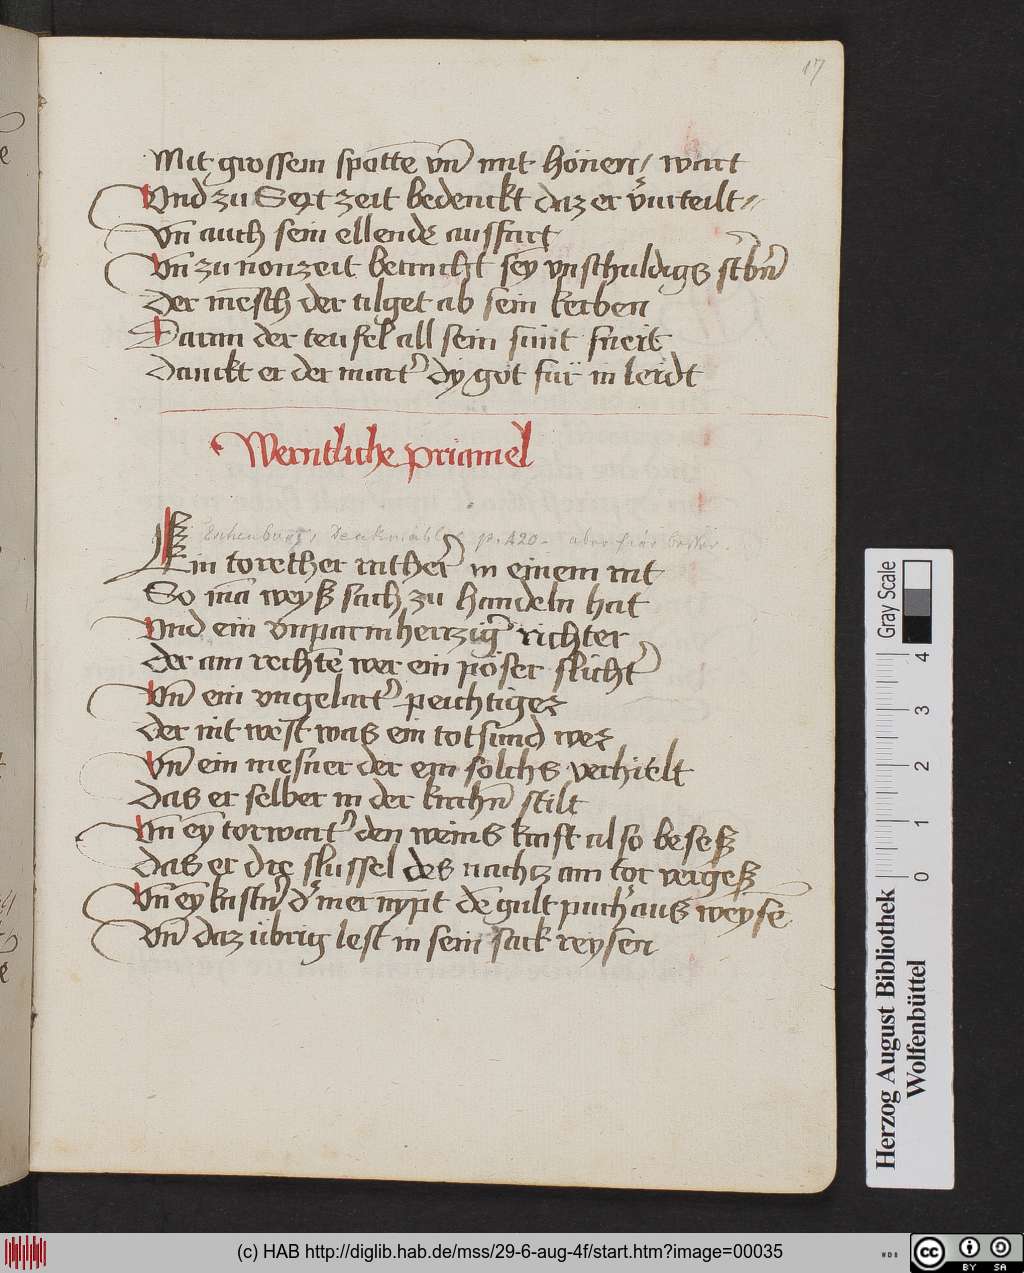 17
Mit grossem spotte vn̄ mit hönen / wart
Vnd zu Sext zeit bedenckt daz er v̓urteilt
Vn̄ auch sein ellende aussfart
Vn̄ zu nonzeit betracht sey vnschuldigs st̓bn̄
Der mēsch der tilget ab sein kerben
Daran der teufel all sein sunt sneit
Danckt er der mart̓ dy got für in leidt
Werntliche priamel
Eschenburgs Denkmäler p. 420. aber hier
Ein torether rather̓ in einem rat
So mā weyß sach zu handeln hat
Vnd ein vnparmhertzig̓ richter
Der am rechtē wer ein pöser slicht̓
Vn̄ ein vngelart̓ peichtiger
Der nit west was ein totsund wer
Vn̄ ein mesner der ein solchs verhielt
Das er selber in der kirchn̄ stilt
Vn̄ eȳ torwart̓ den weins kraft also beseß
Das er die slussel des nachtz am tor vergeß
Vn̄ eȳ kastn̓ d̓ mer nympt dē gult puch auß weysē
Vn̄ daz übrig lest in sein sack reysen
Herzog August Bibliothek
Wolfenbüttel
Gray Scale
0 1 2 3 4
(c) HAB http://diglib.hab.de/mss/29-6-aug-4f/start.htm?image=00035
WDB
cc BY SA